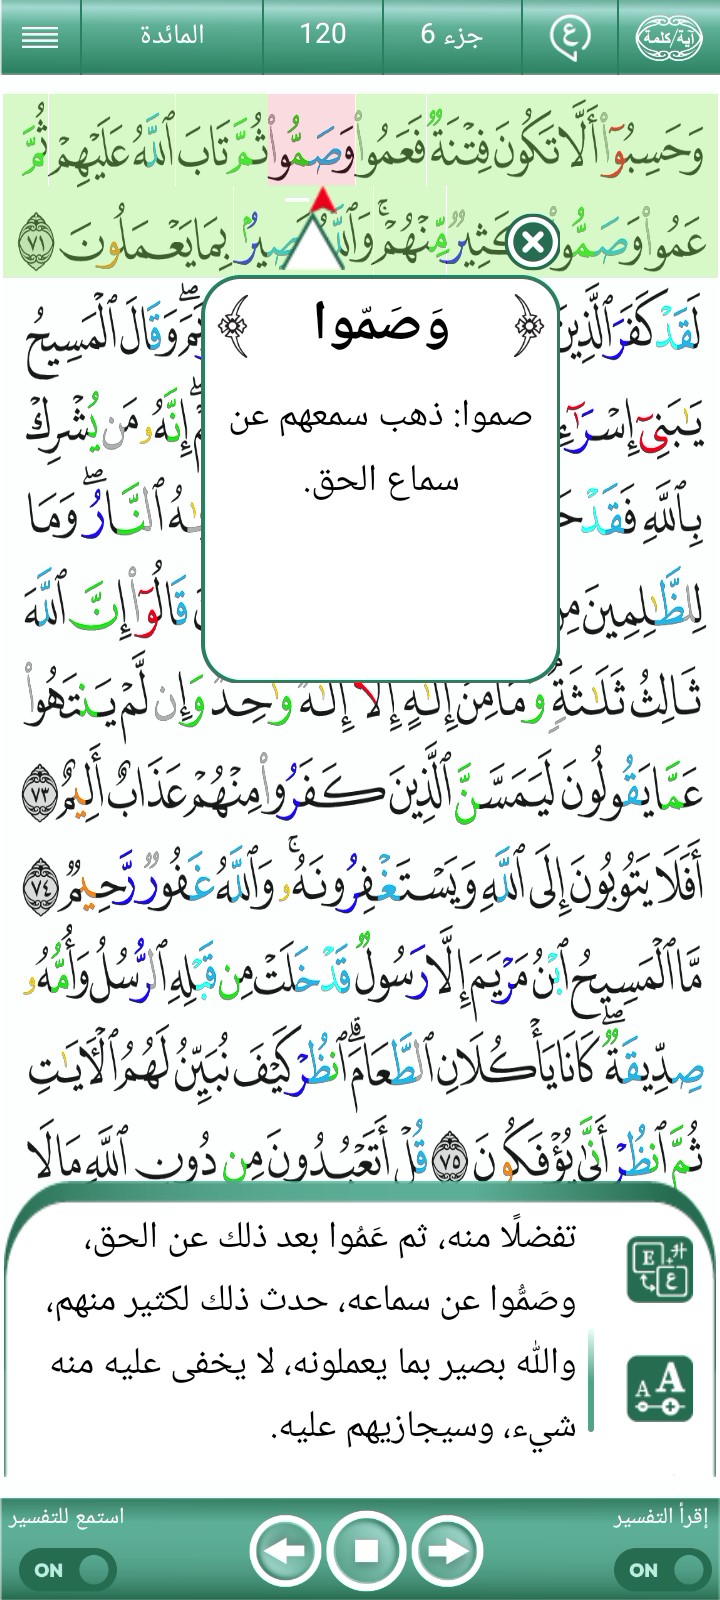 آية/كلمة
ع
جزء 6
120
المائدة
وَحَسِبُوٓا۟ أَلَّا تَكُونَ فِتْنَةٌ فَعَمُوا۟ وَصَمُّوا۟ ثُمَّ تَابَ ٱللَّهُ عَلَيْهِمْ ثُمَّ
عَمُوا۟ وَصَمُّوا۟ كَثِيرٌ مِّنْهُمْ ۚ وَٱللَّهُ بَصِيرٌۢ بِمَا يَعْمَلُونَ ٧١
وَصَمّوا
صموا: ذهب سمعهم عن
سماع الحق.
لَقَدْ كَفَرَ ٱلَّذِينَ وَقَالَ ٱلْمَسِيحُ
يَـٰبَنِىٓ إِنَّهُۥ مَن يُشْرِكْ
بِٱللَّهِ فَقَدْ ٱلنَّارُ ۖ وَمَا
لِلظَّـٰلِمِينَ قَالُوٓا۟ إِنَّ ٱللَّهَ
ثَالِثُ ثَلَـٰثَةٍ ۘ وَمَا مِنْ إِلَـٰهٍ إِلَّآ إِلَـٰهٌ وَٰحِدٌ ۚ وَإِن لَّمْ يَنتَهُوا۟
عَمَّا يَقُولُونَ لَيَمَسَّنَّ ٱلَّذِينَ كَفَرُوا۟ مِنْهُمْ عَذَابٌ أَلِيمٌ ٧٣
أَفَلَا يَتُوبُونَ إِلَى ٱللَّهِ وَيَسْتَغْفِرُونَهُۥ ۚ وَٱللَّهُ غَفُورٌ رَّحِيمٌ ٧٤
مَّا ٱلْمَسِيحُ ٱبْنُ مَرْيَمَ إِلَّا رَسُولٌ قَدْ خَلَتْ مِن قَبْلِهِ ٱلرُّسُلُ وَأُمُّهُۥ
صِدِّيقَةٌ ۖ كَانَا يَأْكُلَانِ ٱلطَّعَامَ ۗ ٱنظُرْ كَيْفَ نُبَيِّنُ لَهُمُ ٱلْـَٔايَـٰتِ
ثُمَّ ٱنظُرْ أَنَّىٰ يُؤْفَكُونَ ٧٥ قُلْ أَتَعْبُدُونَ مِن دُونِ ٱللَّهِ مَا لَا
تفضلًا منه، ثم عَمُوا بعد ذلك عن الحق،
وصَمُّوا عن سماعه، حدث ذلك لكثير منهم،
والله بصير بما يعملونه، لا يخفى عليه منه
شيء، وسيجازيهم عليه.
إقرأ التفسير
استمع للتفسير
ON
ON